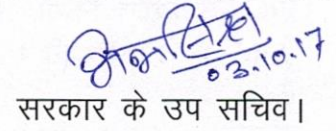 03.10.17
सरकार के उप सचिव।